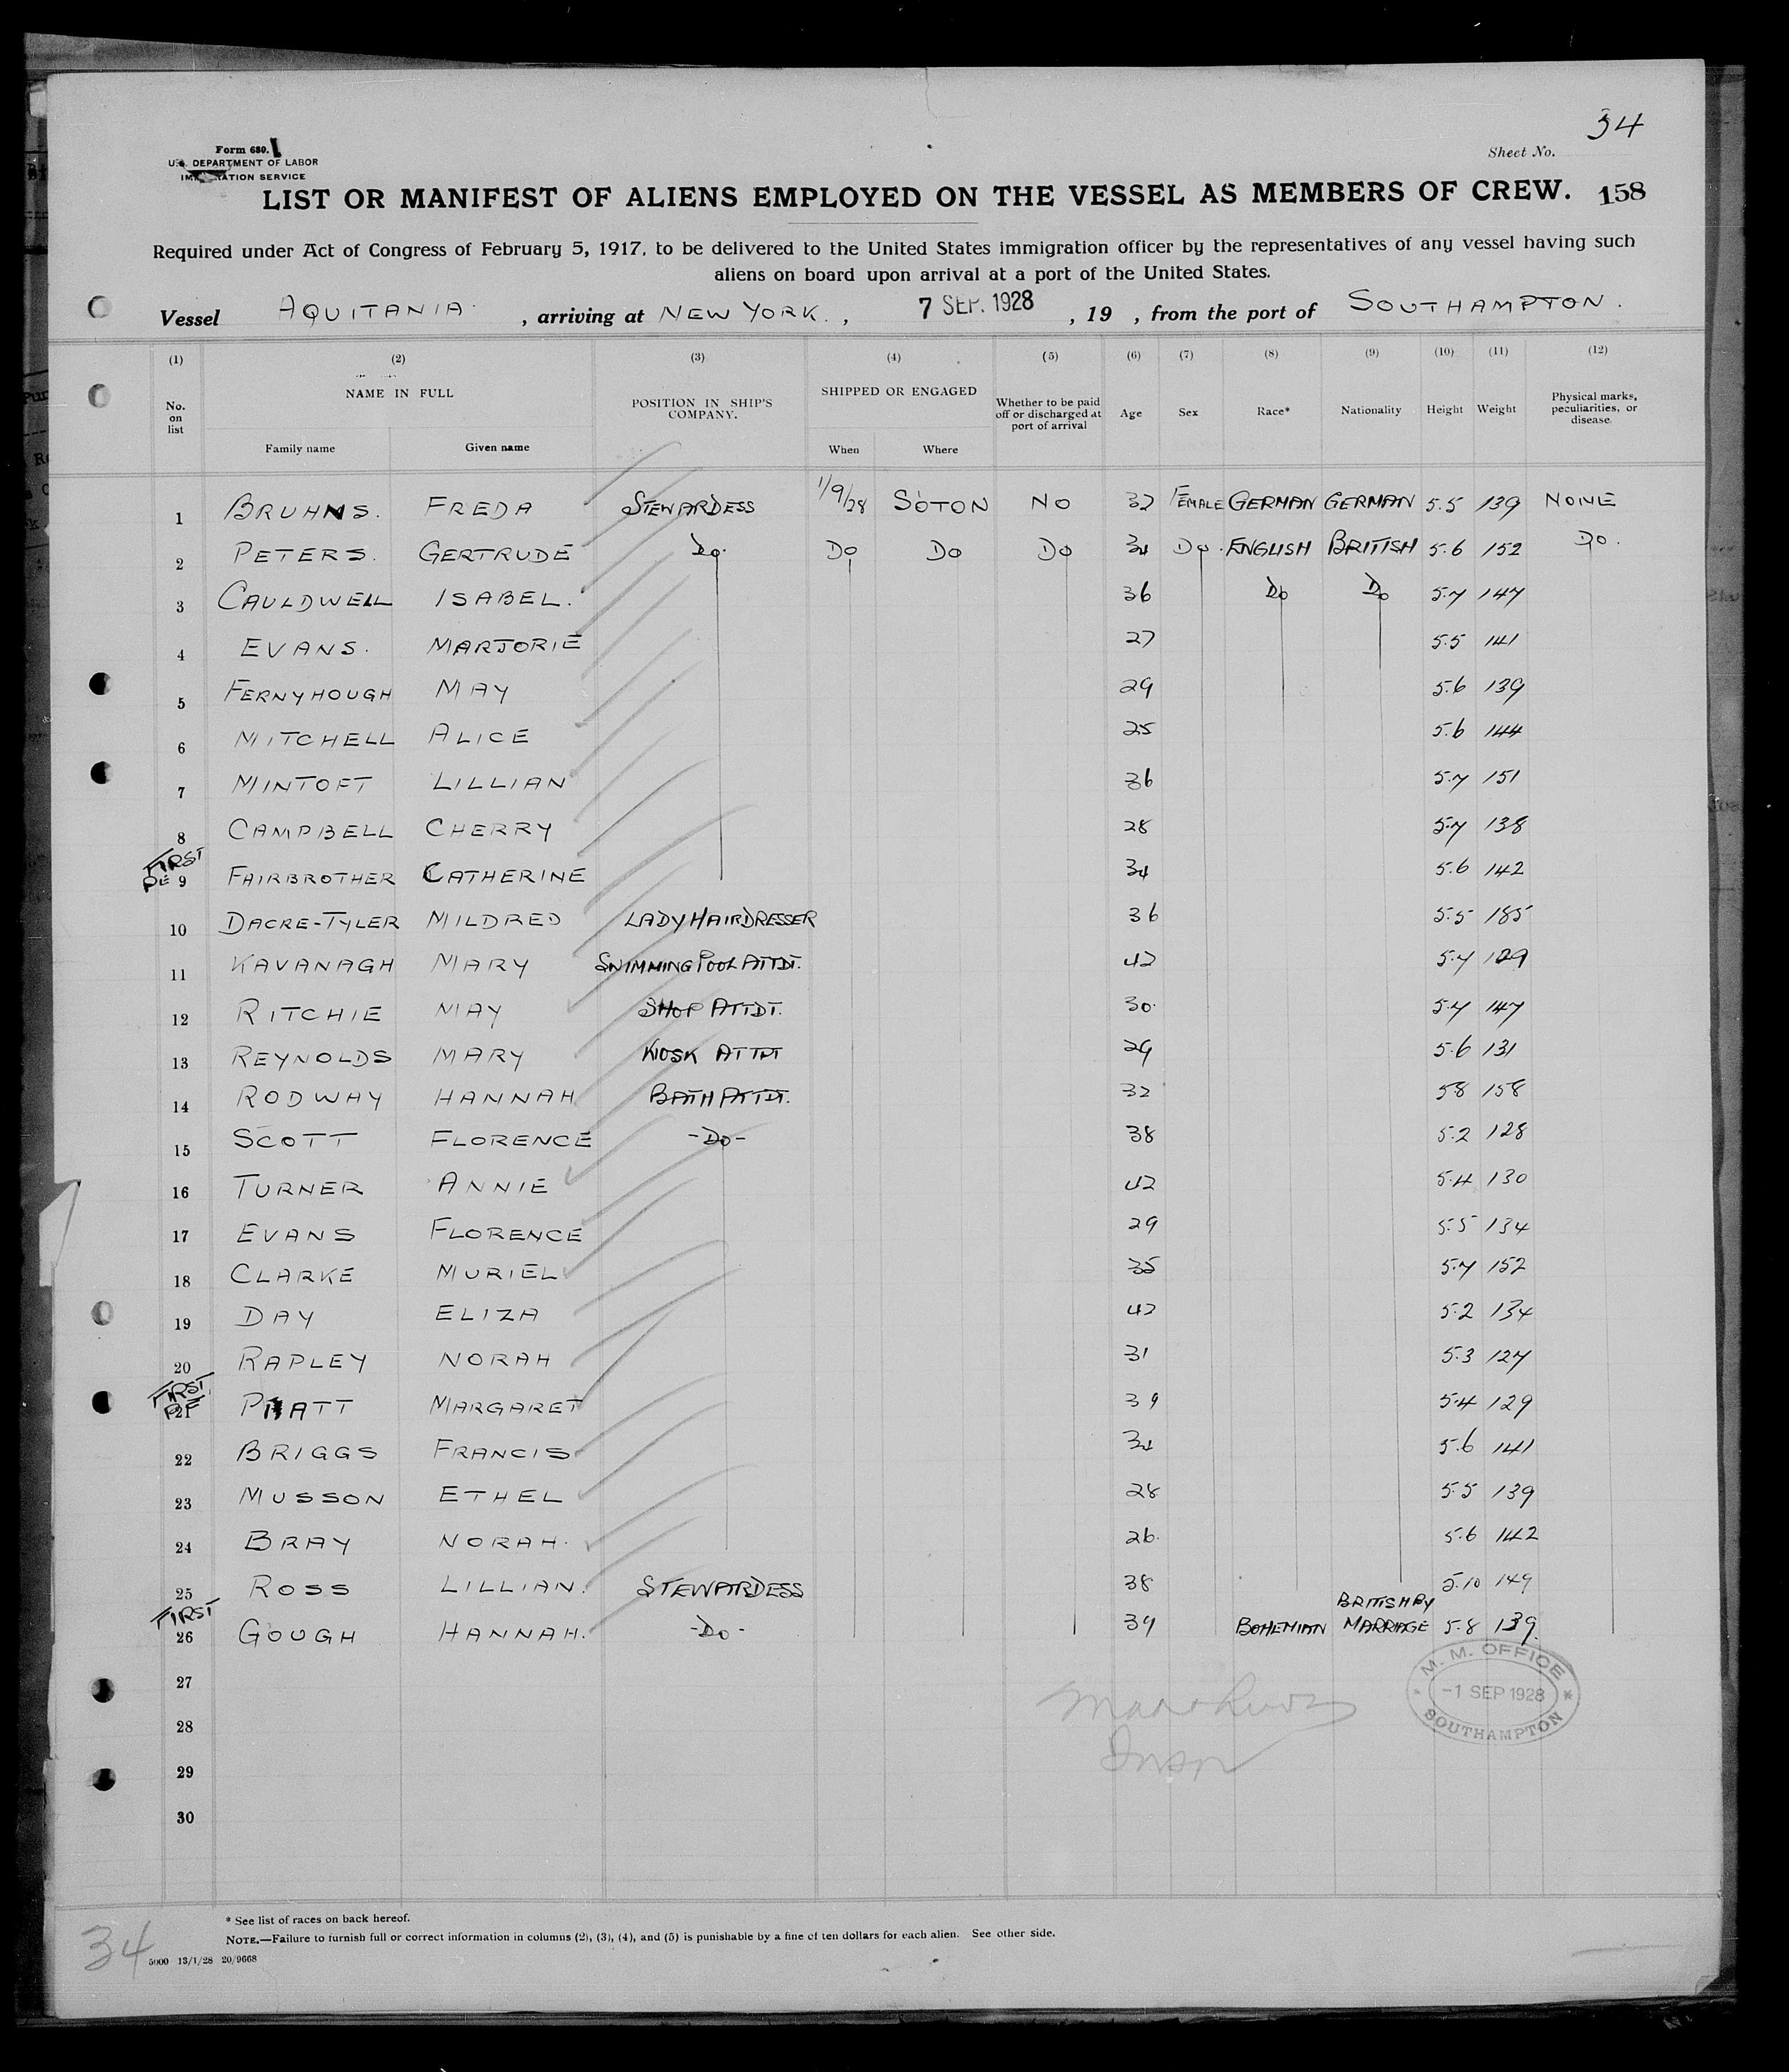 34
Form 680.
U.S. DEPARTMENT OF LABOR
Sheet No.
LIST OR MANIFEST OF ALIENS EMPLOYED ON THE VESSEL AS MEMBERS OF CREW. 158
Required under Act of Congress of February 5, 1917, to be delivered to the United States immigration officer by the representatives of any vessel having such
aliens on board upon arrival at a port of the United States.
Vessel AQUITANIA, arriving at NEW YORK., 7 SEP. 1928, 19 , from the port of SOUTHAMPTON.
(1) (2) (3) (4) (5) (6) (7) (8) (9) (10) (11) (12)
No. on list NAME IN FULL POSITION IN SHIP'S COMPANY. SHIPPED OR ENGAGED Whether to be paid off or discharged at port of arrival Age Sex Race* Nationality Height Weight Physical marks, peculiarities, or disease.
Family name Given name When Where
1 BRUHNS. FREDA STEWARDESS 1/9/28 SOTON NO 32 FEMALE GERMAN GERMAN 5.5 139 NONE
2 PETERS. GERTRUDE Do. Do Do Do 34 Do. ENGLISH BRITISH 5.6 152 Do.
3 CAULDWELL ISABEL. 36 Do Do 5.7 147
4 EVANS. MARJORIE 27 5.5 141
5 FERNYHOUGH MAY 29 5.6 139
6 MITCHELL ALICE 25 5.6 144
7 MINTOFT LILLIAN 36 5.7 151
8 CAMPBELL CHERRY 28 5.7 138
FIRST
9 FAIRBROTHER CATHERINE 34 5.6 142
10 DACRE-TYLER MILDRED LADY HAIRDRESSER 36 5.5 185
11 KAVANAGH MARY SWIMMING POOL ATTDT. 42 5.7 129
12 RITCHIE MAY SHOP ATTDT. 30. 5.7 147
13 REYNOLDS MARY KIOSK ATTDT 29 5.6 131
14 RODWAY HANNAH BATH ATTDT. 32 5.8 158
15 SCOTT FLORENCE -Do- 38 5.2 128
16 TURNER ANNIE 42 5.4 130
17 EVANS FLORENCE 29 5.5 134
18 CLARKE MURIEL 35 5.7 152
19 DAY ELIZA 42 5.2 134
20 RAPLEY NORAH 31 5.3 127
FIRST
21 PRATT MARGARET 39 5.4 129
22 BRIGGS FRANCIS 34 5.6 141
23 MUSSON ETHEL 28 5.5 139
24 BRAY NORAH. 26. 5.6 142
25 ROSS LILLIAN. STEWARDESS 38 5.10 149
FIRST
26 GOUGH HANNAH. -Do- 39 BOHEMIAN BRITISH BY MARRIAGE 5.8 139.
27
28
29
30
M. M. OFFICE
-1 SEP 1928
SOUTHAMPTON
* See list of races on back hereof.
NOTE.—Failure to furnish full or correct information in columns (2), (3), (4), and (5) is punishable by a fine of ten dollars for each alien. See other side.
34
5000 13/1/28 20/9668